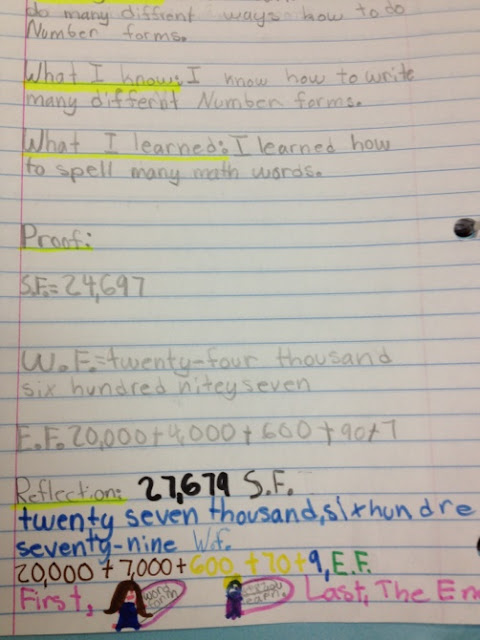 do many diffrent ways how to do
Number forms.
What I know: I know how to write
many differnt Number forms.
What I learned: I learned how
to spell many math words.
Proof:
S.F.= 24,697
W.F.= twenty-four thousand
six hundred nitey seven
E.F. 20,000+4,000+600+90+7
Reflection: 27,679 S.F.
twenty seven thousand, six hundre
seventy-nine W.f.
20,000+7,000+600+70+9, E.F.
First, word form Last, The En